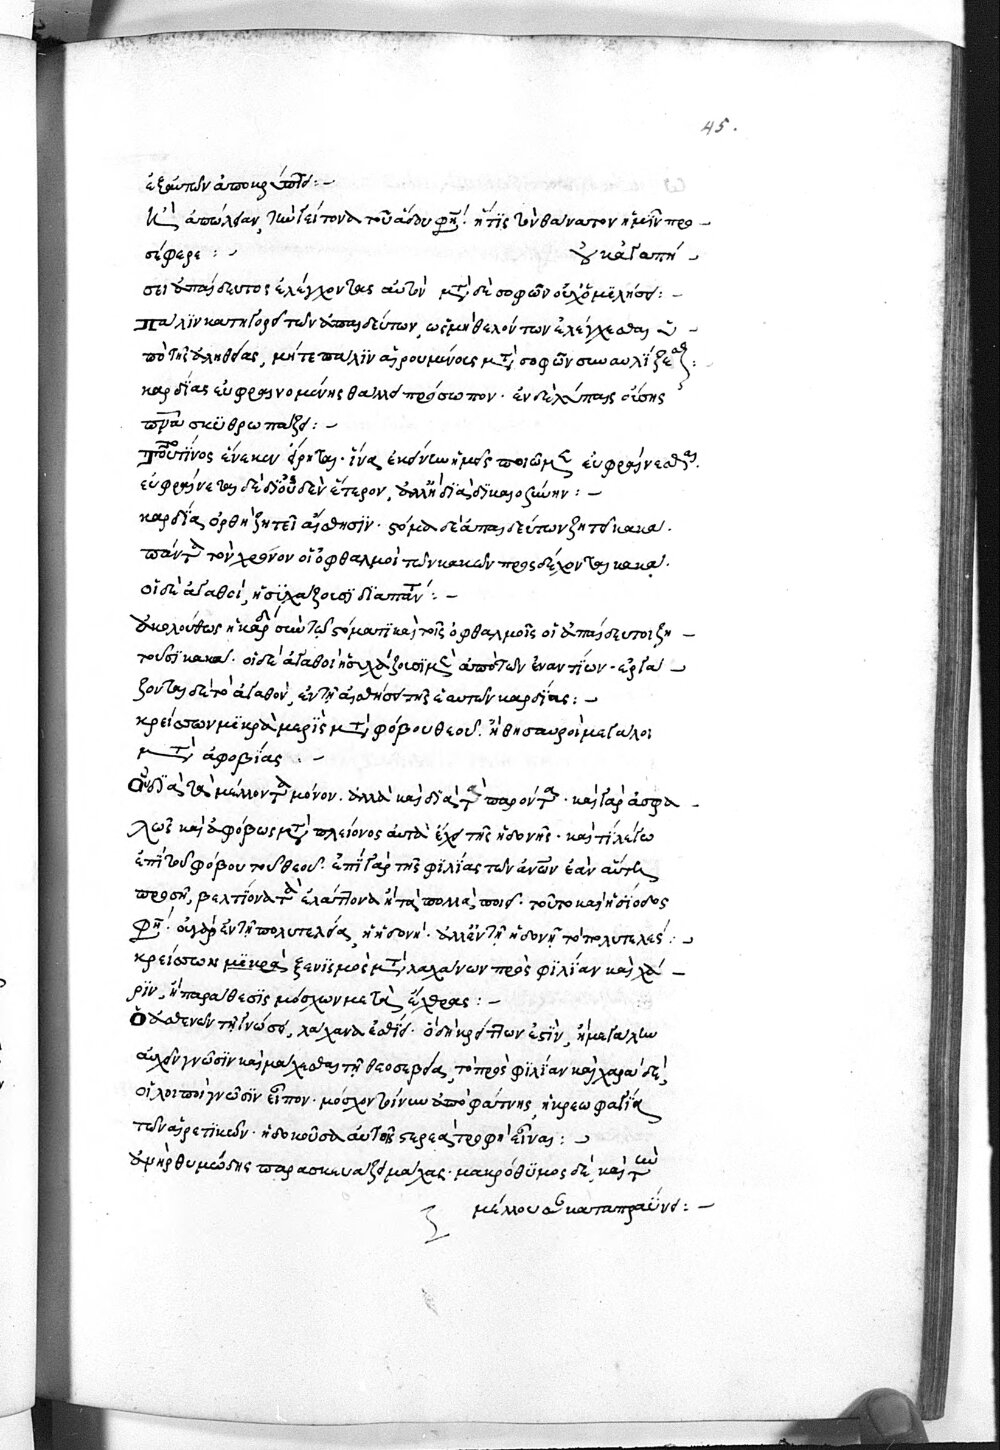 45.
ἐξ αὐτῶν
καὶ ἀπώλειαν, τοῦ ᾅδου φησί· ἥτις τὸν θάνατον ἡμῖν προ
σέφερε : οὐκ ἀγαπή
σει ἀπαίδευτος ἐλέγχοντας αὐτόν μετὰ δὲ σοφῶν οὐχ ὁμιλήσει :
πάλιν κατηγορεῖ τῶν ἀπαιδεύτων, ὡς μὴ θελόντων ἐλέγχεσθαι ὑ
πὸ τῆς ἀληθείας, μήτε πάλιν αἱρουμένοις μετὰ σοφῶν συναυλίζεσθαι :
καρδίας εὐφραινομένης θάλλει πρόσωπον· ἐν δὲ λύπαις οὔσης
σκυθρωπάζει :
τίνος ἕνεκεν εἴρηται· ἵνα ἐκείνην ἡμεῖς ποιῶμεν εὐφραίνεσθαι.
εὐφραίνεται δὲ δι' οὐδὲν ἕτερον, ἀλλ' ἢ διὰ δικαιοσύνην :
καρδία ὀρθὴ ζητεῖ αἴσθησιν· στόμα δὲ ἀπαιδεύτων ζητεῖ κακά.
πάντα τὸν χρόνον οἱ ὀφθαλμοὶ τῶν κακῶν προσδέχονται κακά.
οἱ δὲ ἀγαθοί, ἡσυχάζουσι διαπαντός :
ἀκολούθως ἡ καρδία σὺν τῷ στόματι καὶ τοῖς ὀφθαλμοῖς οἱ ἀπαίδευτοι ζη
τοῦσι κακά· οἱ δὲ ἀγαθοὶ ἡσυχάζουσι μὲν ἀπὸ τῶν ἐναντίων· ἐργά
ζονται δὲ τὸ ἀγαθόν, ἐν τῇ αἰσθήσει τῆς ἑαυτῶν καρδίας :
κρείσσων μικρὰ μερὶς μετὰ φόβου θεοῦ. ἢ θησαυροὶ μεγάλοι
μετὰ ἀφοβίας :
Οὐ διὰ τὰ μέλλοντα μόνον. ἀλλὰ καὶ διὰ τὰ παρόντα· καὶ γὰρ ἀσφα
λῶς καὶ ἀφόβως μετὰ πλείονος αὐτὰ ἔχει τῆς ἡδονῆς· καὶ τί λέγω
ἐπὶ τοῦ φόβου τοῦ θεοῦ. ἐπὶ γὰρ τῆς φιλίας τῶν ἀνθρώπων ἐὰν αὕτη
προσῇ, βελτίονα τὰ ἐλάττονα ἢ τὰ πολλὰ ποιεῖ. τοῦτο καὶ ἡσίοδος
φησί· οὐ γὰρ ἐν τῇ πολυτελείᾳ, ἡ ἡδονή· ἀλλ' ἐν τῇ ἡδονῇ τὸ πολυτελές :
κρείσσων ξενισμὸς μετὰ λαχάνων πρὸς φιλίαν καὶ χά
ριν, ἢ παράθεσις μόσχων μετὰ ἔχθρας :
Ὁ ἀσθενῶν τῇ γνώσει, λάχανα ἐσθίει· ὁ δὴ κρείττων ἐστὶν, ἢ μεγάλην
αὐχεῖν γνῶσιν καὶ μάχεσθαι τῇ θεοσεβείᾳ, τὸ πρὸς φιλίαν καὶ χάριν δέ,
οἱ λοιποὶ γνῶσιν εἶπον· μόσχον τρίνων ἀπὸ φάτνης, ἡ κρεωφαγία
τῶν αἱρετικῶν· ἡ δοκοῦσα αὐτοῖς στερεὰ τροφὴ εἶναι :
ἀνὴρ θυμώδης παρασκευάζει μάχας· μακρόθυμος δὲ, καὶ τὴν
μέλλουσαν καταπραΰνει :